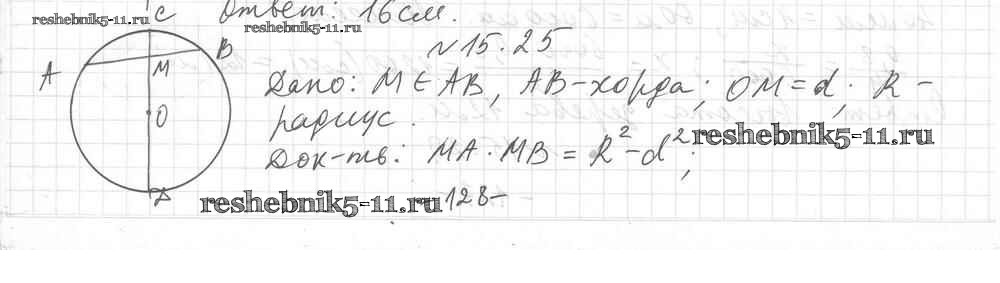 C Ответ: 16 см.
reshebnik5-11.ru
reshebnik5-11.ru
№15.25
A
B
M
O
D
Дано: M ∈ AB, AB-хорда; OM = d; R -
радиус.
reshebnik5-11.ru
Док-ть: MA · MB = R² - d²;
reshebnik5-11.ru
-128-